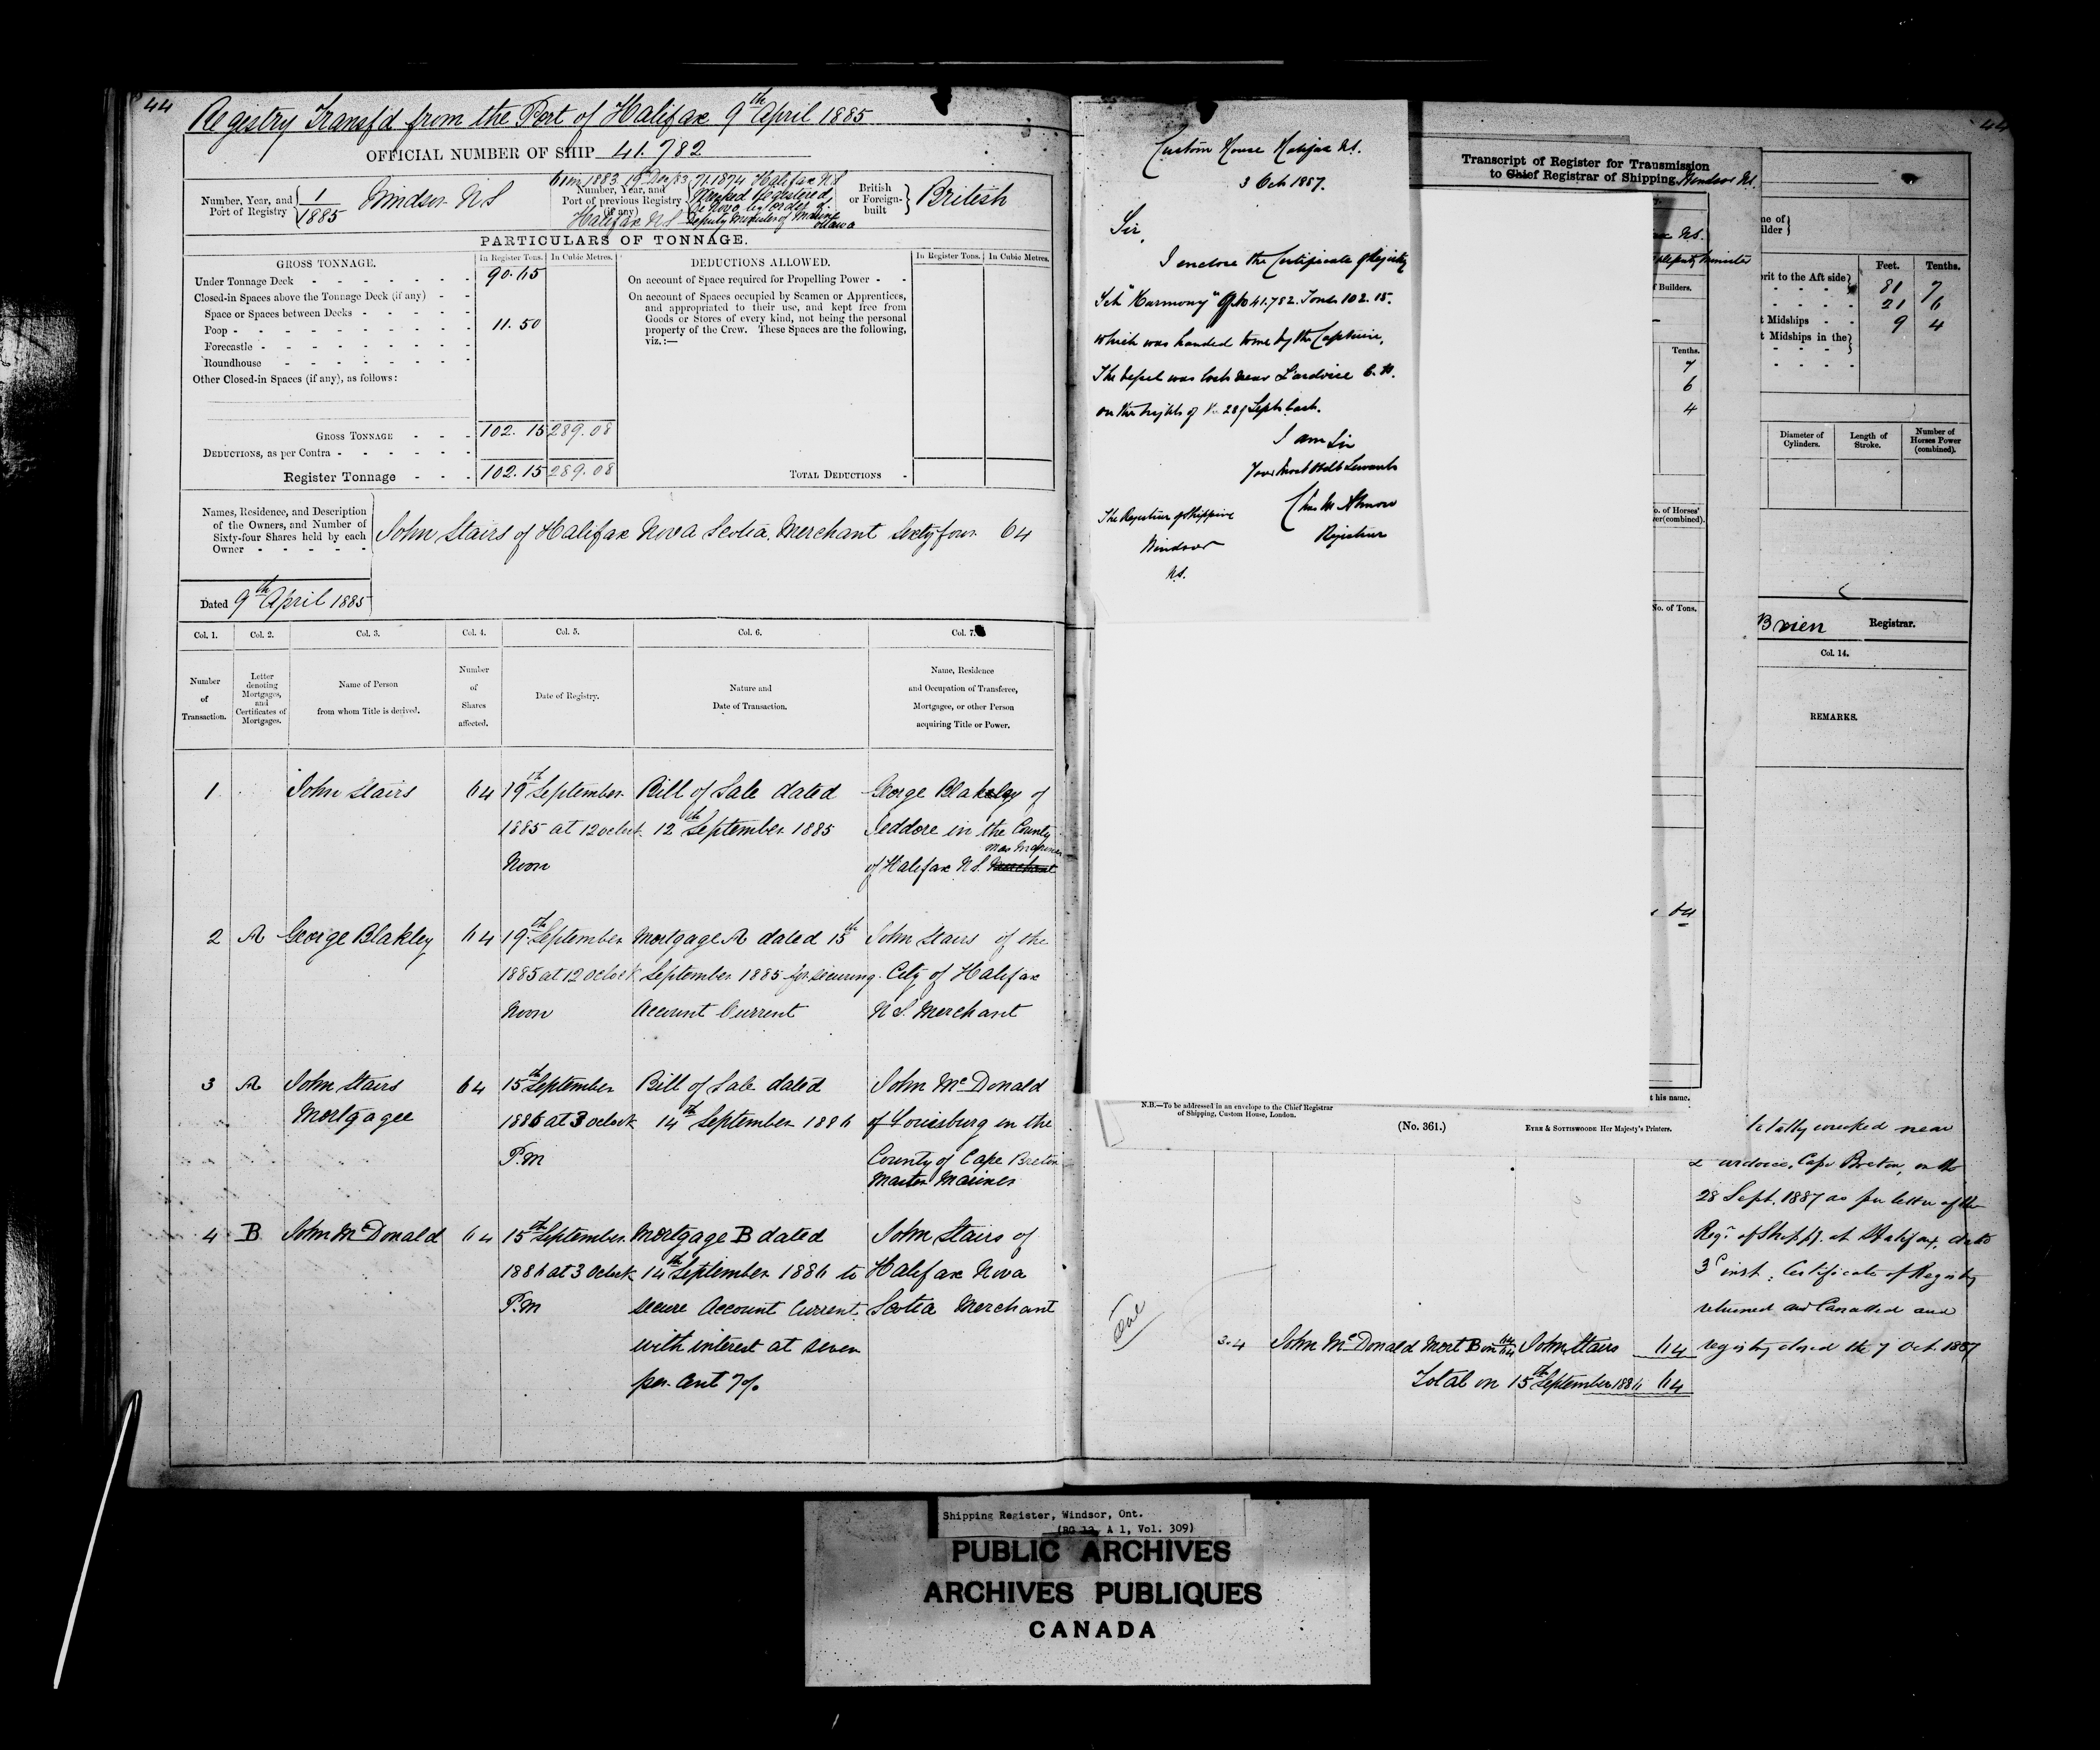 44
Registry Transf'd from the Port of Halifax 9th April 1885
OFFICIAL NUMBER OF SHIP 41.782
Number, Year, and Port of Registry 1/1885 Windsor NS
Number, Year, and Port of previous Registry (if any)
61 in 1883 19th Dec/83 71.1874 Halifax NS
Halifax NS Deputy Minister of Marine Ottawa
British or Foreign-built British
PARTICULARS OF TONNAGE.
GROSS TONNAGE. In Register Tons. In Cubic Metres.
Under Tonnage Deck 90.65
Closed-in Spaces above the Tonnage Deck (if any)
Space or Spaces between Decks
Poop 11.50
Forecastle
Roundhouse
Other Closed-in Spaces (if any), as follows:
GROSS TONNAGE 102.15 289.08
DEDUCTIONS, as per Contra
Register Tonnage 102.15 289.08
DEDUCTIONS ALLOWED. In Register Tons. In Cubic Metres.
On account of Space required for Propelling Power
On account of Spaces occupied by Seamen or Apprentices,
and appropriated to their use, and kept free from
Goods or Stores of every kind, not being the personal
property of the Crew. These Spaces are the following,
viz.:—
TOTAL DEDUCTIONS
Names, Residence, and Description
of the Owners, and Number of
Sixty-four Shares held by each
Owner
John Stairs of Halifax Nova Scotia, Merchant Sixty four 64
Dated 9th April 1885
Col. 1. Col. 2. Col. 3. Col. 4. Col. 5. Col. 6. Col. 7.
Number of Transaction.
Letter denoting Mortgages, and Certificates of Mortgages.
Name of Person from whom Title is derived.
Number of Shares affected.
Date of Registry.
Nature and Date of Transaction.
Name, Residence and Occupation of Transferee, Mortgagee, or other Person acquiring Title or Power.
1 John Stairs 64 19th September Bill of Sale dated George Blakeley of
1885 at 12 oclock 12th September 1885 Jeddore in the County
Mas Mariner
Noon of Halifax N.S. Merchant
2 A George Blakley 64 19th September Mortgage A dated 15th John Stairs of the
1885 at 12 oclock September 1885 for securing City of Halifax
Noon Account Current N S. Merchant
3 A John Stairs 64 15th September Bill of Sale dated John McDonald
Mortgagee 1886 at 3 oclock 14th September 1886 of Louisburg in the
P.M County of Cape Breton
Master Mariner
4 B John McDonald 64 15th September Mortgage B dated John Stairs of
1886 at 3 Oclock 14th September 1886 to Halifax Nova
P.M secure Account Current Scotia Merchant
with interest at seven
per cent 7%
Custom House Halifax N.S.
3 Oct 1887.
Sir,
I enclose the Certificate of Registry
Sch "Harmony" O.No 41.782. Tons 102.15.
which was handed to me by the Captain.
The Vessel was lost near L'ardoise C.B.
on the night of the 28th Septr last.
I am Sir
Your Most Obdt Servant
Registrar
The Registrar of Shipping
Windsor
N.S.
Transcript of Register for Transmission
to Chief Registrar of Shipping, Windsor N.S.
N.S.
Deputy Minister
Builders.
Tenths.
7
6
4
No. of Tons.
64
his name.
N.B.—To be addressed in an envelope to the Chief Registrar
of Shipping, Custom House, London.
(No. 361.)
EYRE & SOTTISWOODE Her Majesty's Printers.
44
Feet. Tenths.
81 7
21 6
9 4
Midships
Midships in the
Diameter of Cylinders. Length of Stroke. Number of Horses Power (combined).
Brien Registrar.
Col. 14.
REMARKS.
totally wrecked near
L'ardoise, Cape Breton, on the
28 Sept. 1887 as per letter of the
Regr of Shippg. at Halifax, dated
3d inst; Certificate of Registry
returned and Cancelled and
registry closed the 7 Oct. 1887
3.4 John McDonald Mort B on 64/64 John Stairs 64
Total on 15th September 1886 64
Shipping Register, Windsor, Ont.
(RG 12, A 1, Vol. 309)
PUBLIC ARCHIVES
ARCHIVES PUBLIQUES
CANADA